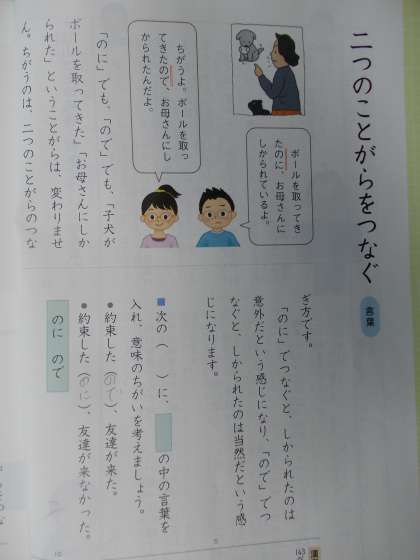 二つのことがらをつなぐ
言葉
ボールを取ってき
たのに、お母さんに
しかられているよ。
ちがうよ。ボールを取っ
てきたので、お母さんにし
かられたんだよ。
「のに」でも、「ので」でも、「子犬が
ボールを取ってきた」「お母さんにしか
られた」ということがらは、変わりませ
ん。ちがうのは、二つのことがらのつな
ぎ方です。
「のに」でつなぐと、しかられたのは
意外だという感じになり、「ので」でつ
なぐと、しかられたのは当然だという感
じになります。
次の( )に、 の中の言葉を
入れ、意味のちがいを考えましょう。
約束した(ので)、友達が来た。
約束した(のに)、友達が来なかった。
のに ので
5
10
143